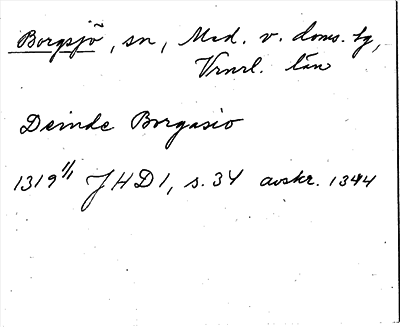 Borgsjö, sn, Med. v. doms. tg,
Vrnrl. län
Deinde Borgasio
1319 1/1 JHD 1, s. 34 avskr. 1344